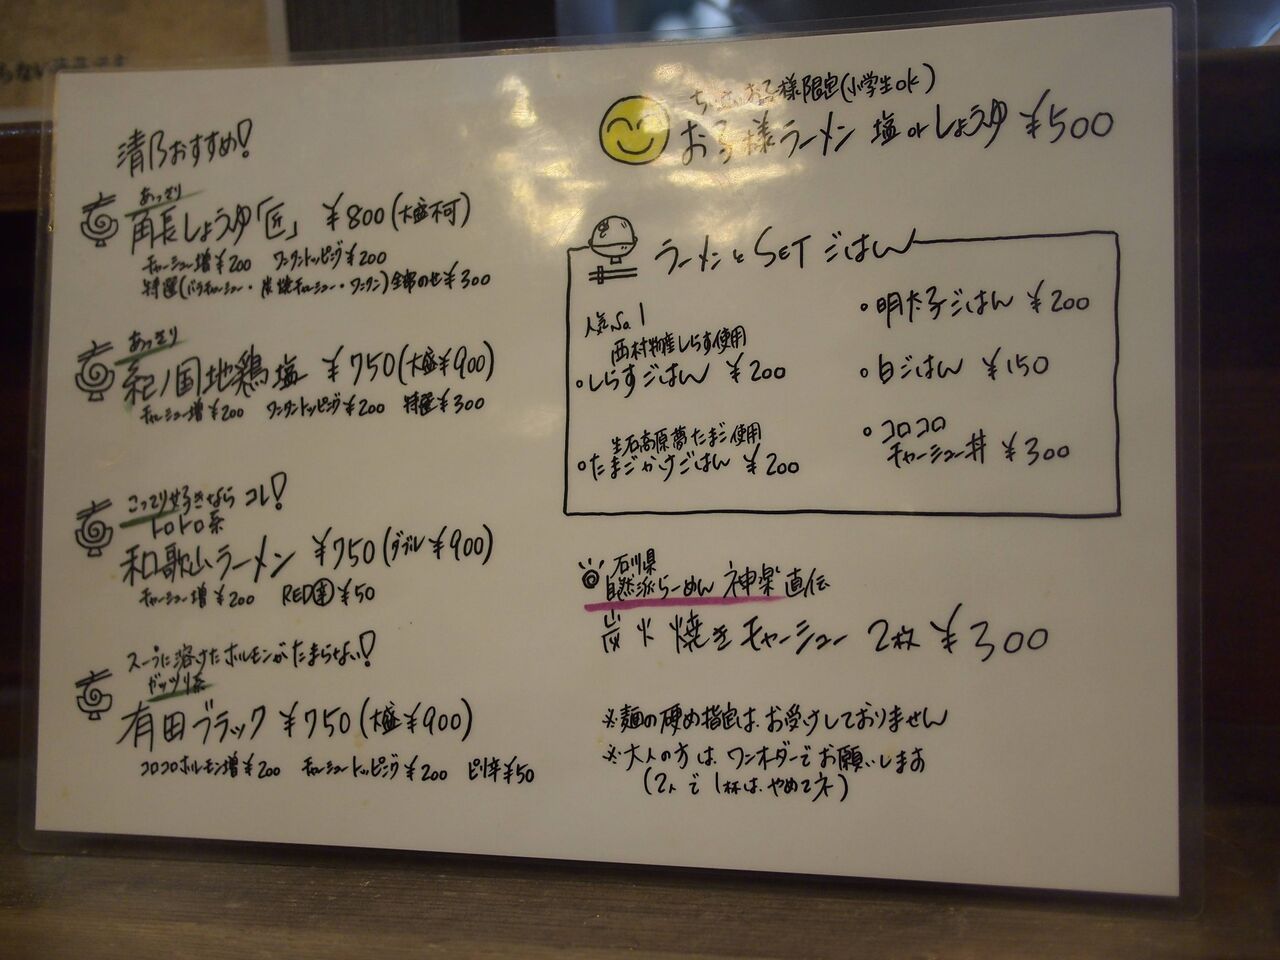 らない
清乃おすすめ!
あっさり
角長しょうゆ「匠」 ¥800(大盛不可)
チャーシュー増¥200 ワンタントッピング¥200
特選(バラチャーシュー・炭焼チャーシュー・ワンタン)全部のせ¥300
あっさり
紀ノ国地鶏塩 ¥750(大盛¥900)
チャーシュー増¥200 ワンタントッピング¥200 特選¥300
こってり好きなら コレ!
トロトロ系
和歌山ラーメン ¥750(ダブル¥900)
チャーシュー増¥200 RED玉¥50
スープに溶けたホルモンがたまらない!
ガッツリ系
有田ブラック ¥750(大盛¥900)
コロコロホルモン増¥200 チャーシュートッピング¥200 ピリ辛¥50
お子様限定(小学生ok)
お子様ラーメン 塩 or しょうゆ ¥500
ラーメンと SET ごはん
人気No.1
西村物産しらす使用
・しらすごはん ¥200
生石高原夢たまご使用
・たまごかけごはん ¥200
・明太子ごはん ¥200
・白ごはん ¥150
・コロコロ
チャーシュー丼 ¥300
石川県
自然派らーめん 神楽 直伝
炭火焼きチャーシュー 2枚 ¥300
※麺の硬め指定は、お受けしておりません
※大人の方は、ワンオーダーでお願いします
(2人で1杯は、やめてネ)